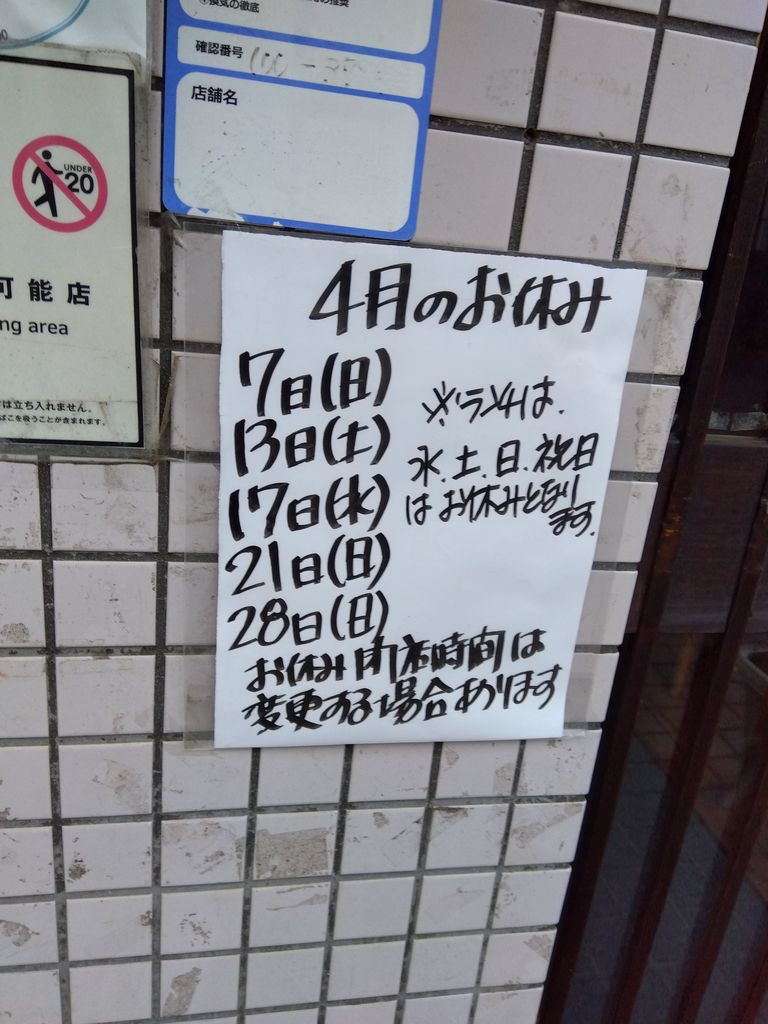 ①換気の徹底
確認番号
店舗名
UNDER
20
可能店
ng area
は立ち入れません。
ばこを吸うことが含まれます。
4月のお休み
7日(日)
13日(土)
17日(水)
21日(日)
28日(日)
※ランチは、
水、土、日、祝日
はお休みとなり
ます。
お休み 閉店時間は
変更する場合あります